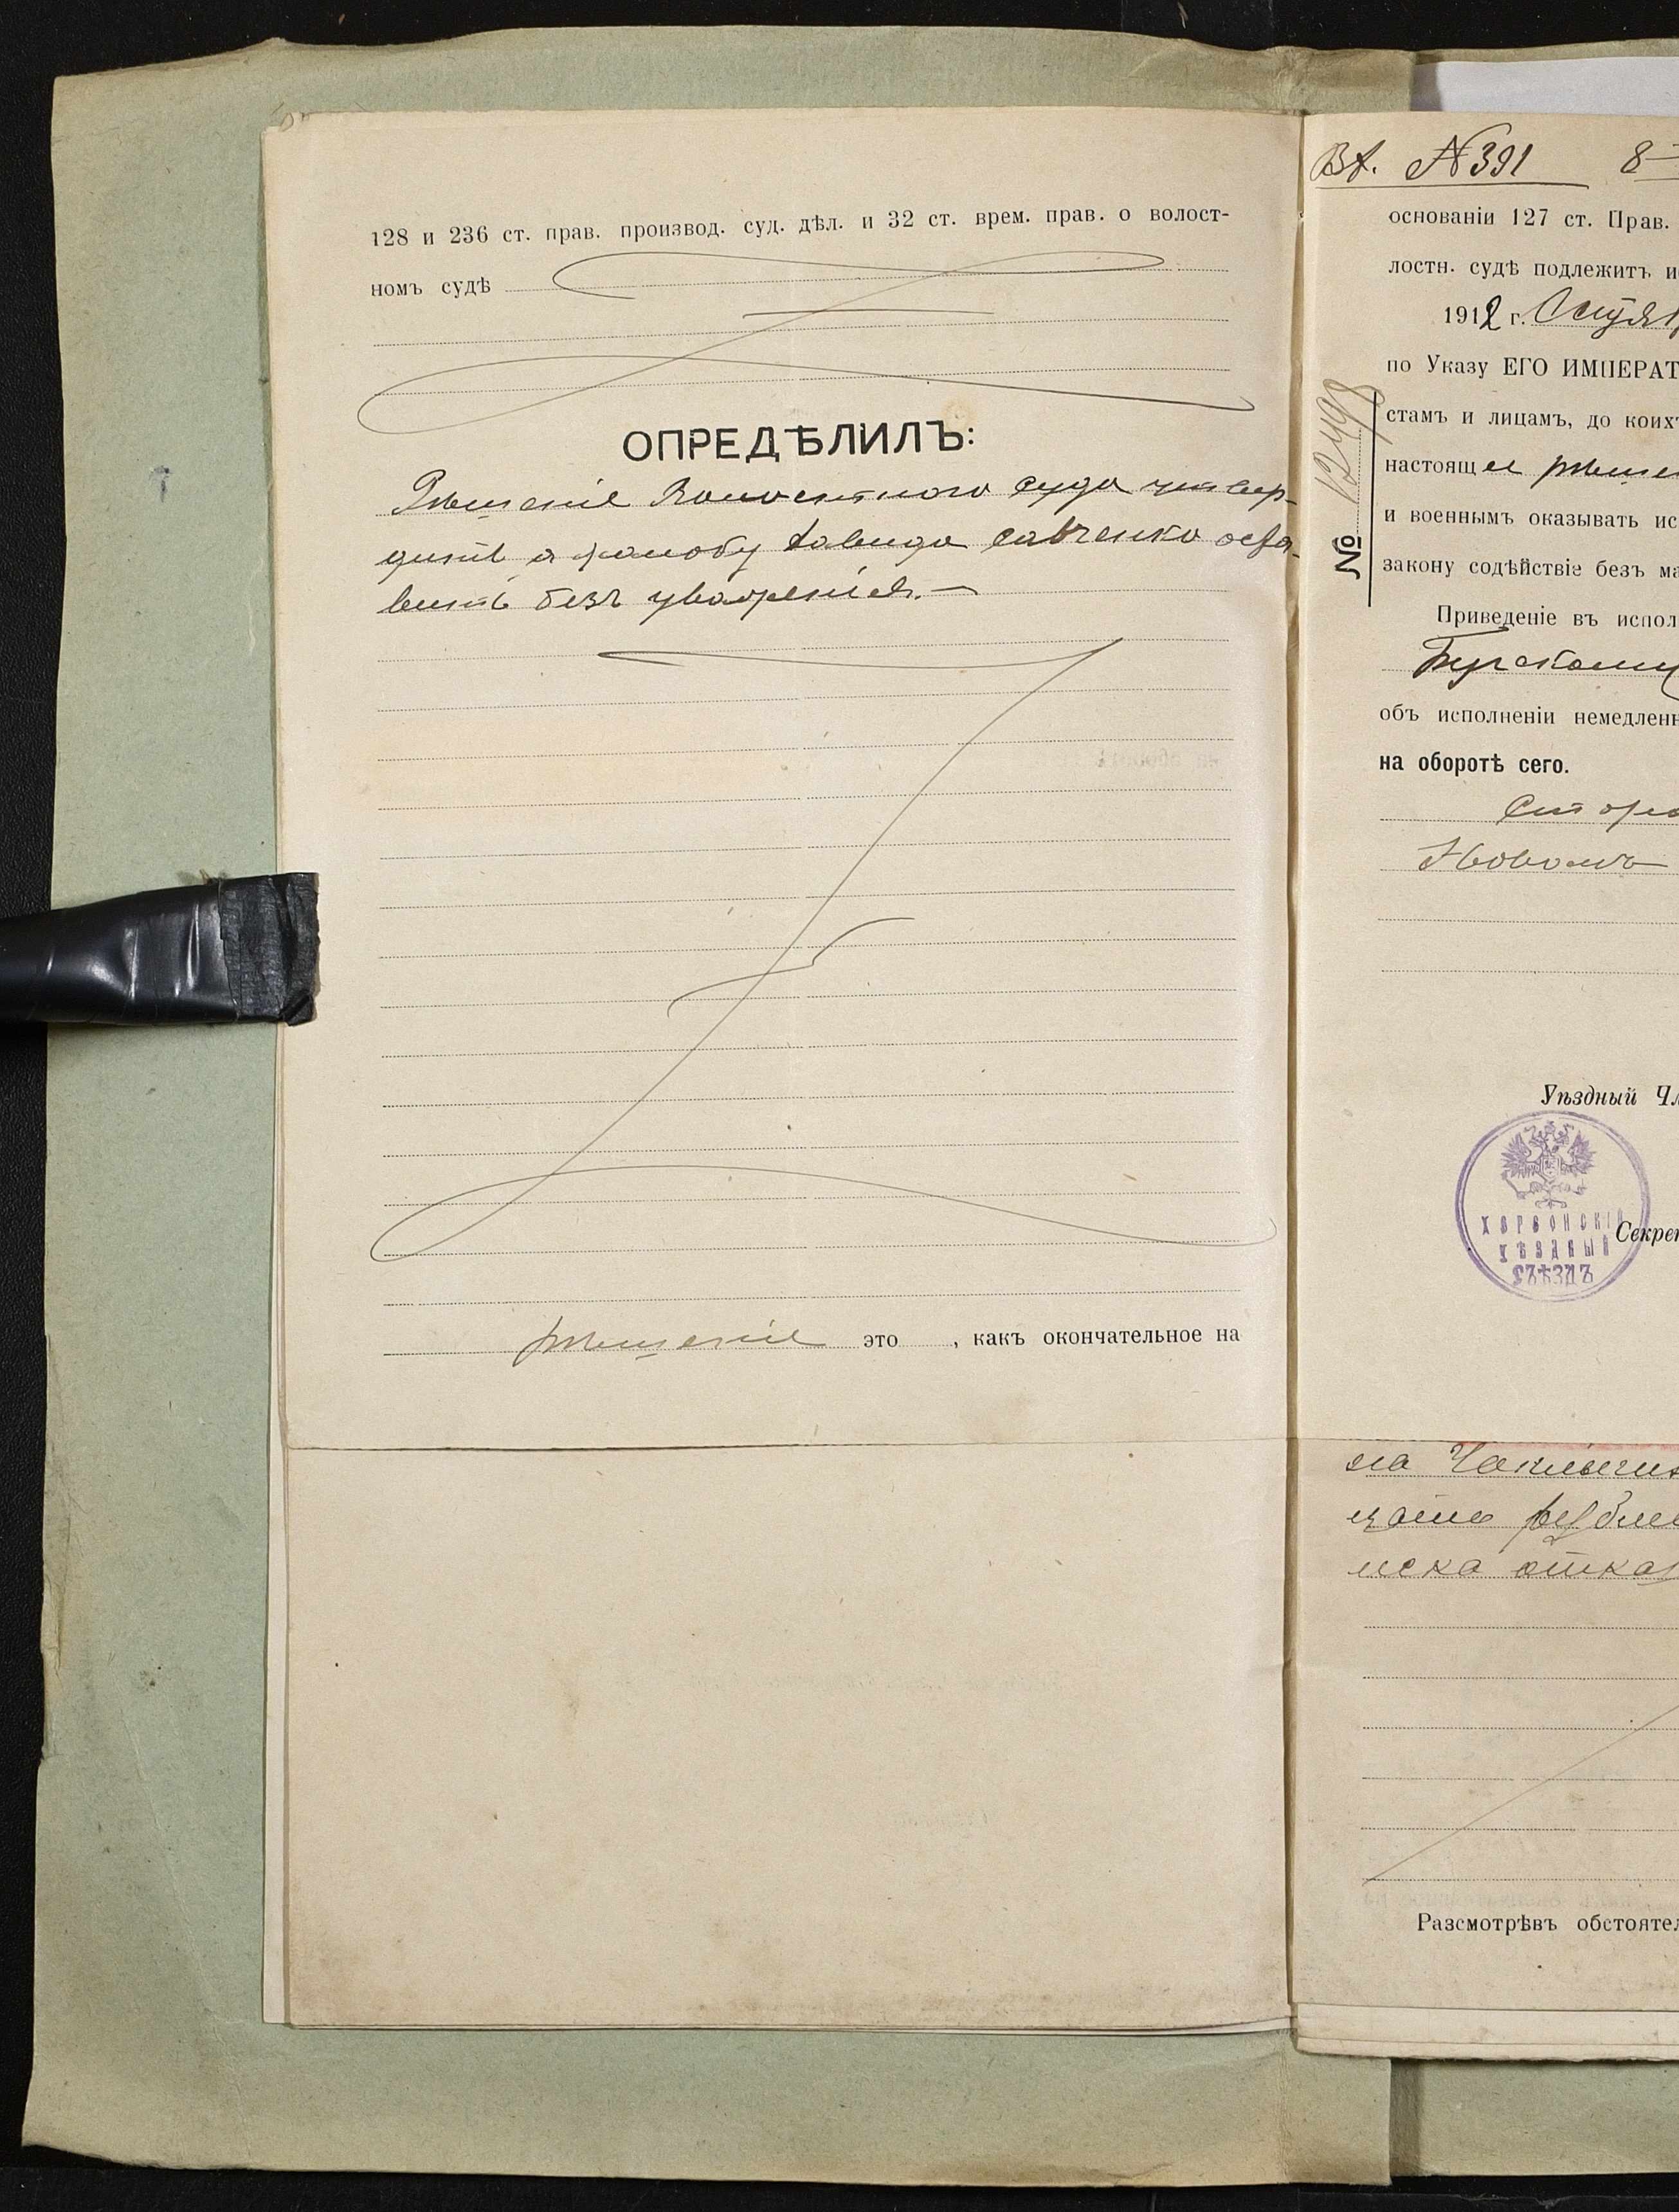 128 и 236 ст. прав. производ. суд. дѣл. и 32 ст. врем. прав. о волост-
номъ судѣ
ОПРЕДѢЛИЛЪ:
Рѣшеніе Волостного Суда утвер-
дить а жалобу Давида Савченко оста-
вить безъ уваженія.—
рѣшеніе это , какъ окончательное на
Вх. № 391 8
основаніи 127 ст. Прав.
лостн. судѣ подлежитъ и
1912 г.
по Указу ЕГО ИМПЕРАТ
стамъ и лицамъ, до коихъ
настоящее рѣше
и военнымъ оказывать ис
закону содѣйствіе безъ ма
№ 12498
Приведеніе въ испол
объ исполненіи немедленн
на оборотѣ сего.
Уѣздный Чл
ХЕРСОНСКІЙ
УѢЗДНЫЙ
СЪѢЗДЪ
Секрет
на
иска отказ
Разсмотрѣвъ обстоятел